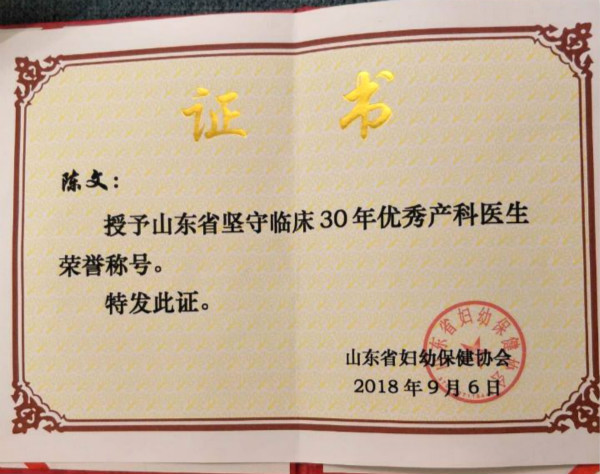 证 书
陈文：
授予山东省坚守临床30年优秀产科医生
荣誉称号。
特发此证。
山东省妇幼保健协会
山东省妇幼保健协会
2018年9月6日